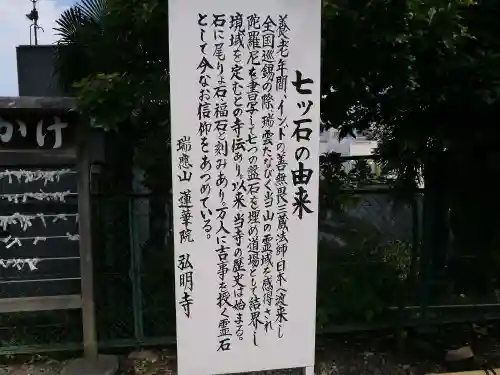 七ッ石の由来
養老年間、インドの善無畏三蔵法師日本へ渡来し
全国巡錫の際、瑞雲たなびく当山の霊域を感得され
陀羅尼を書写して七つの霊石を埋め道場として結界し
境域を定むとの寺伝あり、以来、当寺の歴史は始まる。
石に尾りょ石、福石と刻み、あり、万人に吉事を授く霊石
として今なお信仰をあつめている。
瑞應山 蓮華院 弘明寺
かけ